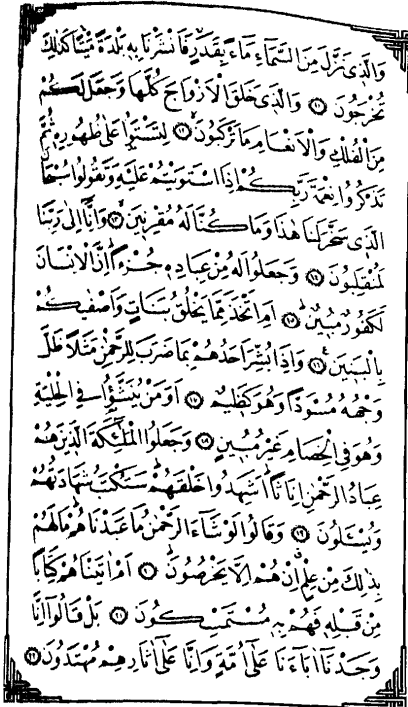 وَالَّذِي نَزَّلَ مِنَ السَّمَاءِ مَاءً بِقَدَرٍ فَاَنْشَرْنَا بِهِ بَلْدَةً مَيْتًا كَذٰلِكَ
تُخْرَجُونَ ﴿١١﴾ وَالَّذِي خَلَقَ الْاَزْوَاجَ كُلَّهَا وَجَعَلَ لَكُمْ
مِنَ الْفُلْكِ وَالْاَنْعَامِ مَا تَرْكَبُونَ ﴿١٢﴾ لِتَسْتَوُا عَلٰى ظُهُورِهِ ثُمَّ
تَذْكُرُوا نِعْمَةَ رَبِّكُمْ اِذَا اسْتَوَيْتُمْ عَلَيْهِ وَتَقُولُوا سُبْحَانَ
الَّذِي سَخَّرَ لَنَا هٰذَا وَمَا كُنَّا لَهُ مُقْرِنِينَ ﴿١٣﴾ وَاِنَّا اِلٰى رَبِّنَا
لَمُنْقَلِبُونَ ﴿١٤﴾ وَجَعَلُوا لَهُ مِنْ عِبَادِهِ جُزْءًا اِنَّ الْاِنْسَانَ
لَكَفُورٌ مُبِينٌ ﴿١٥﴾ اَمِ اتَّخَذَ مِمَّا يَخْلُقُ بَنَاتٍ وَاَصْفٰيكُمْ
بِالْبَنِينَ ﴿١٦﴾ وَاِذَا بُشِّرَ اَحَدُهُمْ بِمَا ضَرَبَ لِلرَّحْمٰنِ مَثَلًا ظَلَّ
وَجْهُهُ مُسْوَدًّا وَهُوَ كَظِيمٌ ﴿١٧﴾ اَوَمَنْ يُنَشَّؤُا فِي الْحِلْيَةِ
وَهُوَ فِي الْخِصَامِ غَيْرُ مُبِينٍ ﴿١٨﴾ وَجَعَلُوا الْمَلٰئِكَةَ الَّذِينَ هُمْ
عِبَادُ الرَّحْمٰنِ اِنَاثًا اَشَهِدُوا خَلْقَهُمْ سَتُكْتَبُ شَهَادَتُهُمْ
وَيُسْـَٔلُونَ ﴿١٩﴾ وَقَالُوا لَوْ شَاءَ الرَّحْمٰنُ مَا عَبَدْنَاهُمْ مَا لَهُمْ
بِذٰلِكَ مِنْ عِلْمٍ اِنْ هُمْ اِلَّا يَخْرُصُونَ ﴿٢٠﴾ اَمْ اٰتَيْنَاهُمْ كِتَابًا
مِنْ قَبْلِهِ فَهُمْ بِهِ مُسْتَمْسِكُونَ ﴿٢١﴾ بَلْ قَالُوا اِنَّا
وَجَدْنَا اٰبَاءَنَا عَلٰى اُمَّةٍ وَاِنَّا عَلٰى اٰثَارِهِمْ مُهْتَدُونَ ﴿٢٢﴾